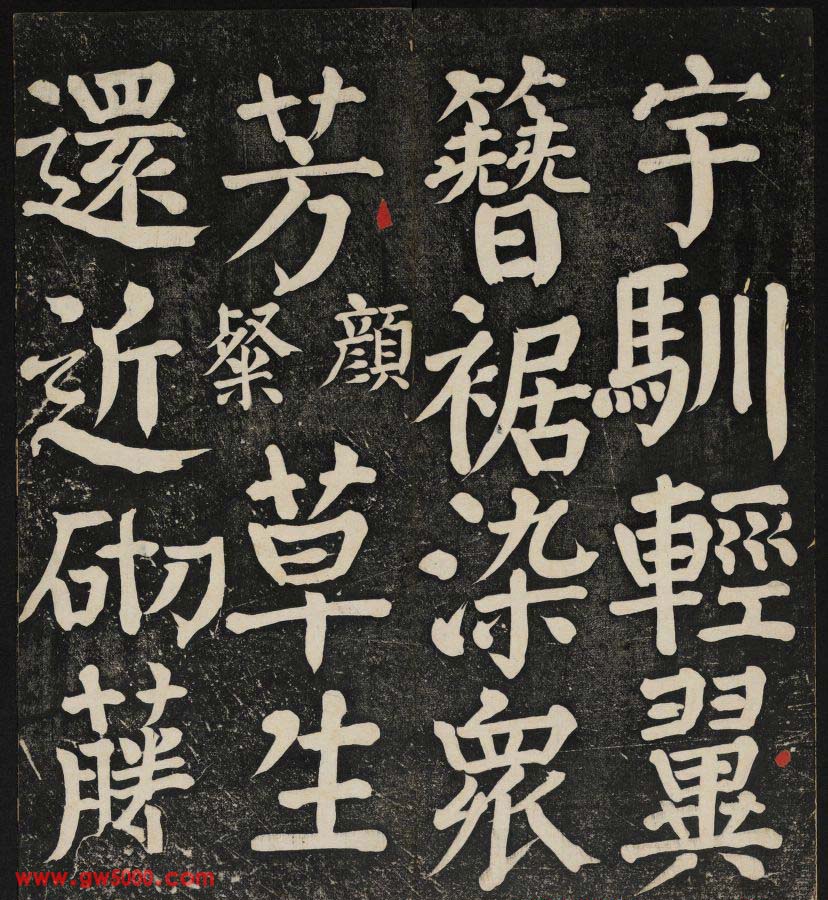 宇馴輕翼
簪裾染眾
芳顔粲草生
還近砌藤
www.gw5000.com